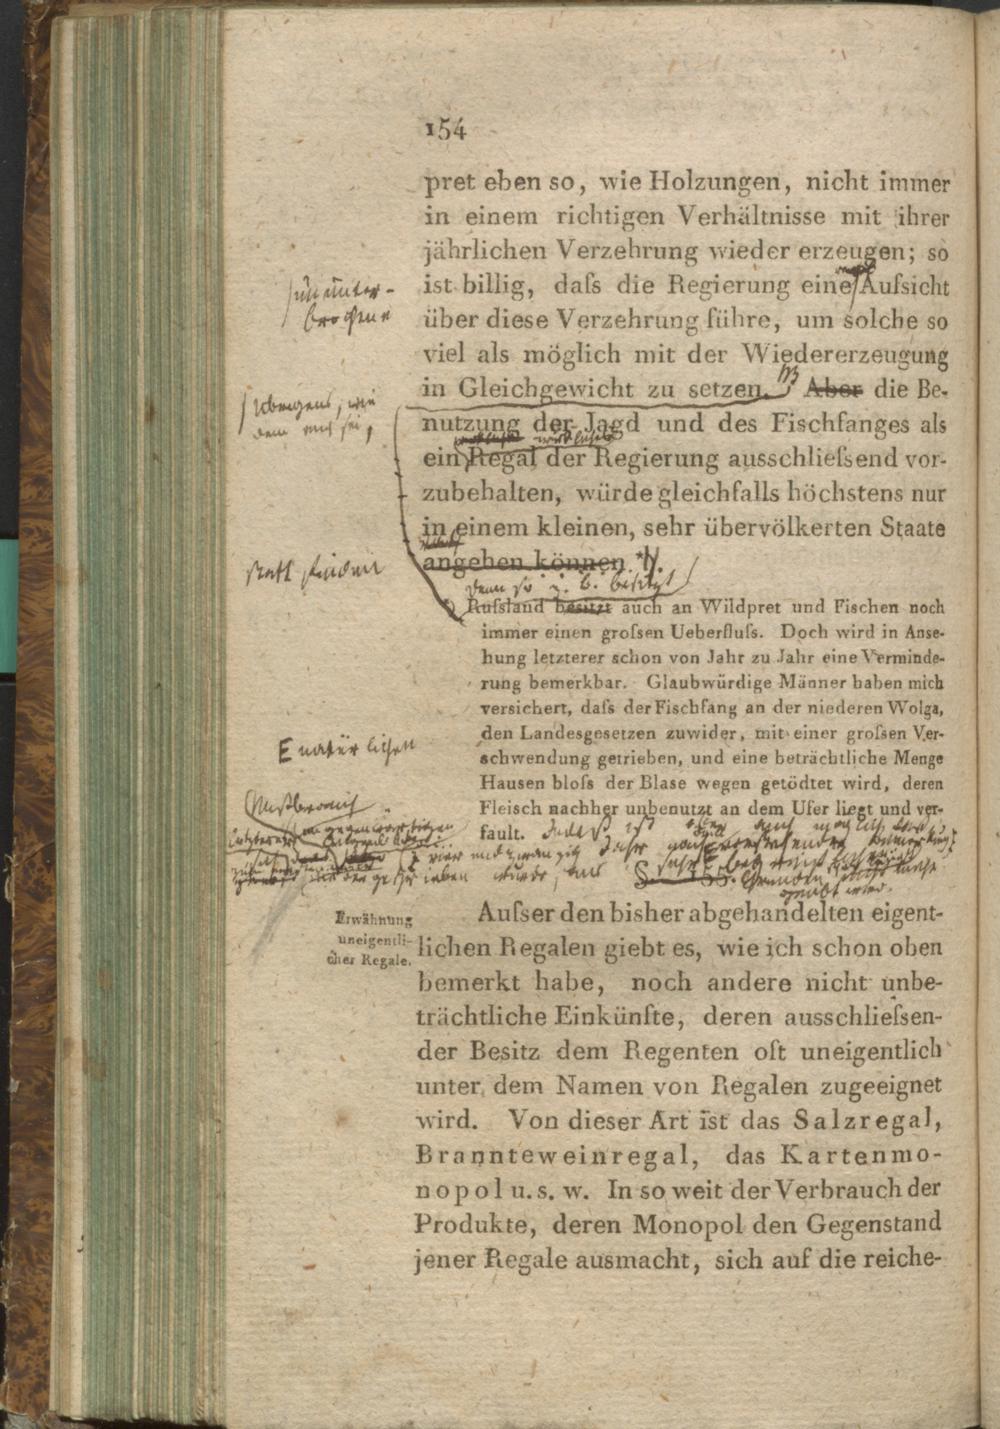 154
pret eben so, wie Holzungen, nicht immer
in einem richtigen Verhältnisse mit ihrer
jährlichen Verzehrung wieder erzeugen; so
ist billig, daſs die Regierung eine Aufsicht
ununter-
brochene
über diese Verzehrung führe, um solche so
viel als möglich mit der Wiedererzeugung
in Gleichgewicht zu setzen. Aber die Be-
Uebrigens, wie
dem auch sei,
nutzung der Jagd und des Fischfanges als
wirkliches
ein Regal der Regierung ausschlieſsend vor-
zubehalten, würde gleichfalls höchstens nur
in einem kleinen, sehr übervölkerten Staate
statt finden
angehen können *).
denn so z. b. besitzt
*) Ruſsland besitzt auch an Wildpret und Fischen noch
immer einen groſsen Ueberfluſs. Doch wird in Anse-
hung letzterer schon von Jahr zu Jahr eine Verminde-
rung bemerkbar. Glaubwürdige Männer haben mich
versichert, daſs der Fischfang an der niederen Wolga,
den Landesgesetzen zuwider, mit einer groſsen Ver-
E natürlichen
schwendung getrieben, und eine beträchtliche Menge
Hausen bloſs der Blase wegen getödtet wird, deren
Miſsbrauch
Fleisch nachher unbenutzt an dem Ufer liegt und ver-
fault.
§. 155.
Erwähnung
uneigentli-
cher Regale.
Auſser den bisher abgehandelten eigent-
lichen Regalen giebt es, wie ich schon oben
bemerkt habe, noch andere nicht unbe-
trächtliche Einkünfte, deren ausschlieſsen-
der Besitz dem Regenten oft uneigentlich
unter dem Namen von Regalen zugeeignet
wird. Von dieser Art ist das Salzregal,
Brannteweinregal, das Kartenmo-
nopol u. s. w. In so weit der Verbrauch der
Produkte, deren Monopol den Gegenstand
jener Regale ausmacht, sich auf die reiche-